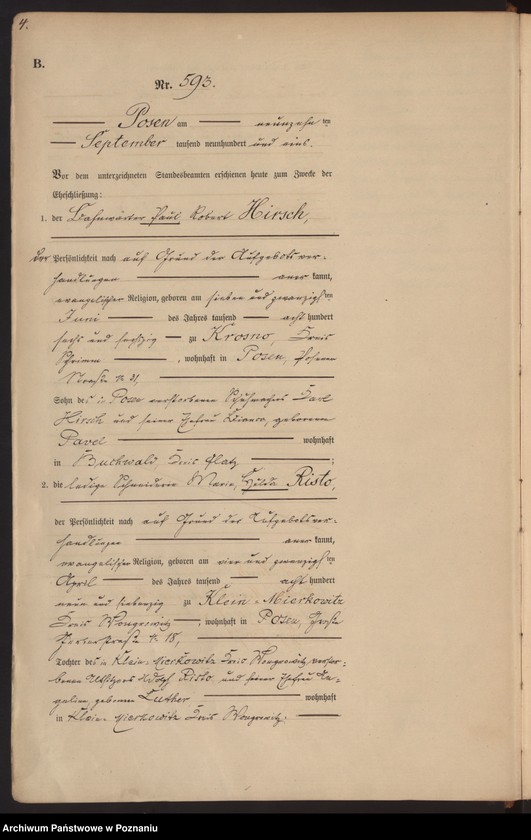 4.
B.
Nr. 593.
Posen am neunzehn ten
September tausend neunhundert und eins.
Vor dem unterzeichneten Standesbeamten erschienen heute zum Zwecke der
Eheschließung:
1. der Bahnwärter Paul Robert Hirsch,
der Persönlichkeit nach auf Grund der Aufgebotsver-
handlungen aner kannt,
evangelischer Religion, geboren am sieben und zwanzigsten
Juni des Jahres tausend acht hundert
sechs und sechzig zu Krosno, Kreis
Schrimm, wohnhaft in Posen,
Straße № 31,
Sohn des in Posen verstorbenen Schuhmachers Karl
Hirsch und seiner Ehefrau geborenen
Pavel wohnhaft
in Buchwald, Kreis Glatz;
2. die ledige Schneiderin Maria Hilda Risto,
der Persönlichkeit nach auf Grund der Aufgebotsver-
handlungen aner kannt,
evangelischer Religion, geboren am vier und zwanzigsten
April des Jahres tausend acht hundert
neun und siebenzig zu Klein-Mierkowitz
Kreis Wongrowitz, wohnhaft in Posen, Große
Gerberstraße № 18,
Tochter des in Klein-Mierkowitz Kreis Wongrowitz verstor-
benen Adolf Risto, und seiner Ehefrau
geborenen Luther wohnhaft
in Klein-Mierkowitz Kreis Wongrowitz.
Archiwum Państwowe w Poznaniu